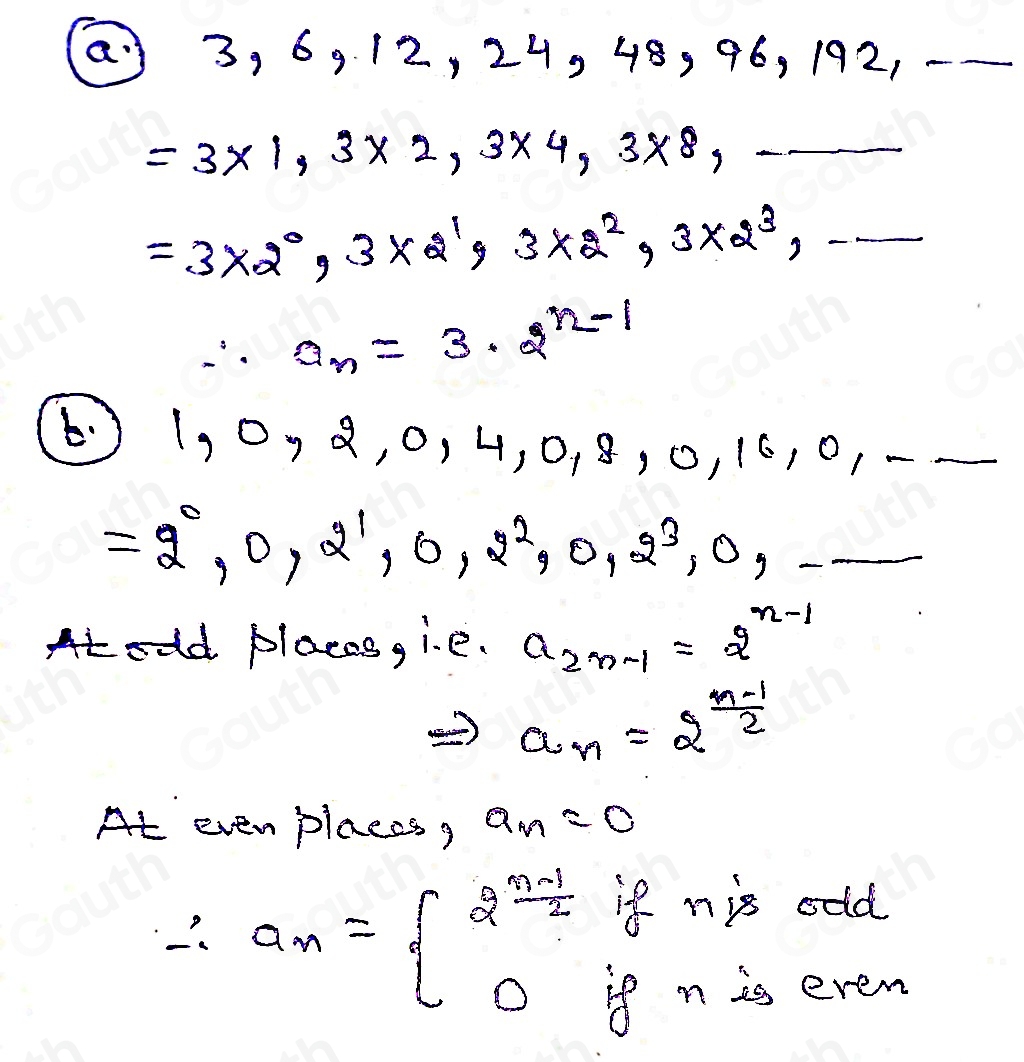 a. 3, 6, 12, 24, 48, 96, 192, ---
= 3×1, 3×2, 3×4, 3×8, ---
= 3×2⁰, 3×2¹, 3×2², 3×2³, ---
∴ aₙ = 3 · 2ⁿ⁻¹
b. 1, 0, 2, 0, 4, 0, 8, 0, 16, 0, ---
= 2⁰, 0, 2¹, 0, 2², 0, 2³, 0, ---
At odd places, i.e. a₂ₙ₋₁ = 2ⁿ⁻¹
⇒ aₙ = 2^((n-1)/2)
At even places, aₙ = 0
∴ aₙ = { 2^((n-1)/2) if n is odd
0 if n is even
Gauth